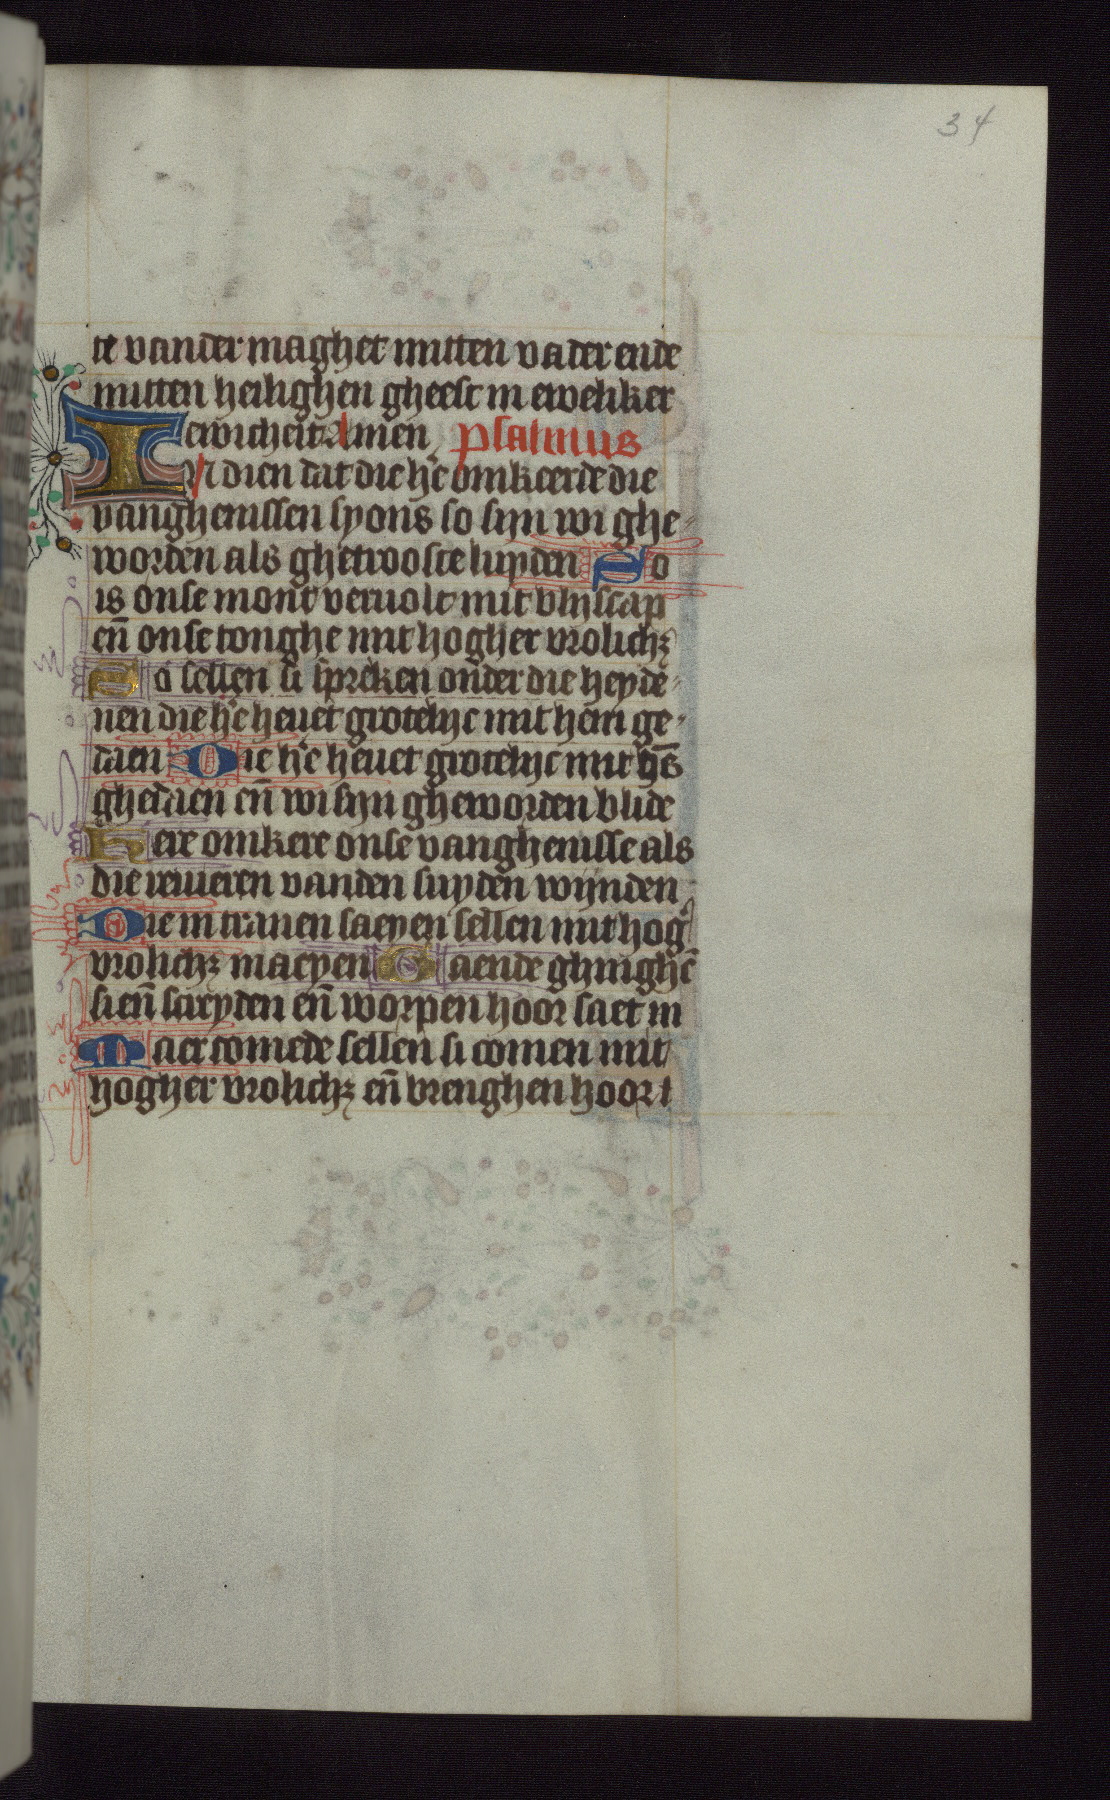 34
te vander maghet mitten vader ende
mitten heilighen gheest in eweliker
ewicheit Amen Psalmus
In dien dat die hr̄e omkeerde die
vanghenissen syons so sijn wi ghe-
worden als ghetrooste luyden So
is onse mont veruolt mit blijscap
en̄ onse tonghe mit hogher vrolichꝫ
So sellen si spreken onder die heydē-
nen die hr̄e heuet grotelijc mit hem ge-
daen Die hr̄e heuet grotelijc mit hē
ghedaen en̄ wi sijn gheworden blide
Here omkere onse vanghenisse als
die reuieren vanden suyden wijnden
Die in tranen saeyen sellen mit hogʼ
vrolichꝫ maeyen Gaende ghinghē
si en̄ screyden en̄ worpen hoor saet in
Maer comede sellen si comen mit
hogher vrolichꝫ en̄ brenghen hoor t